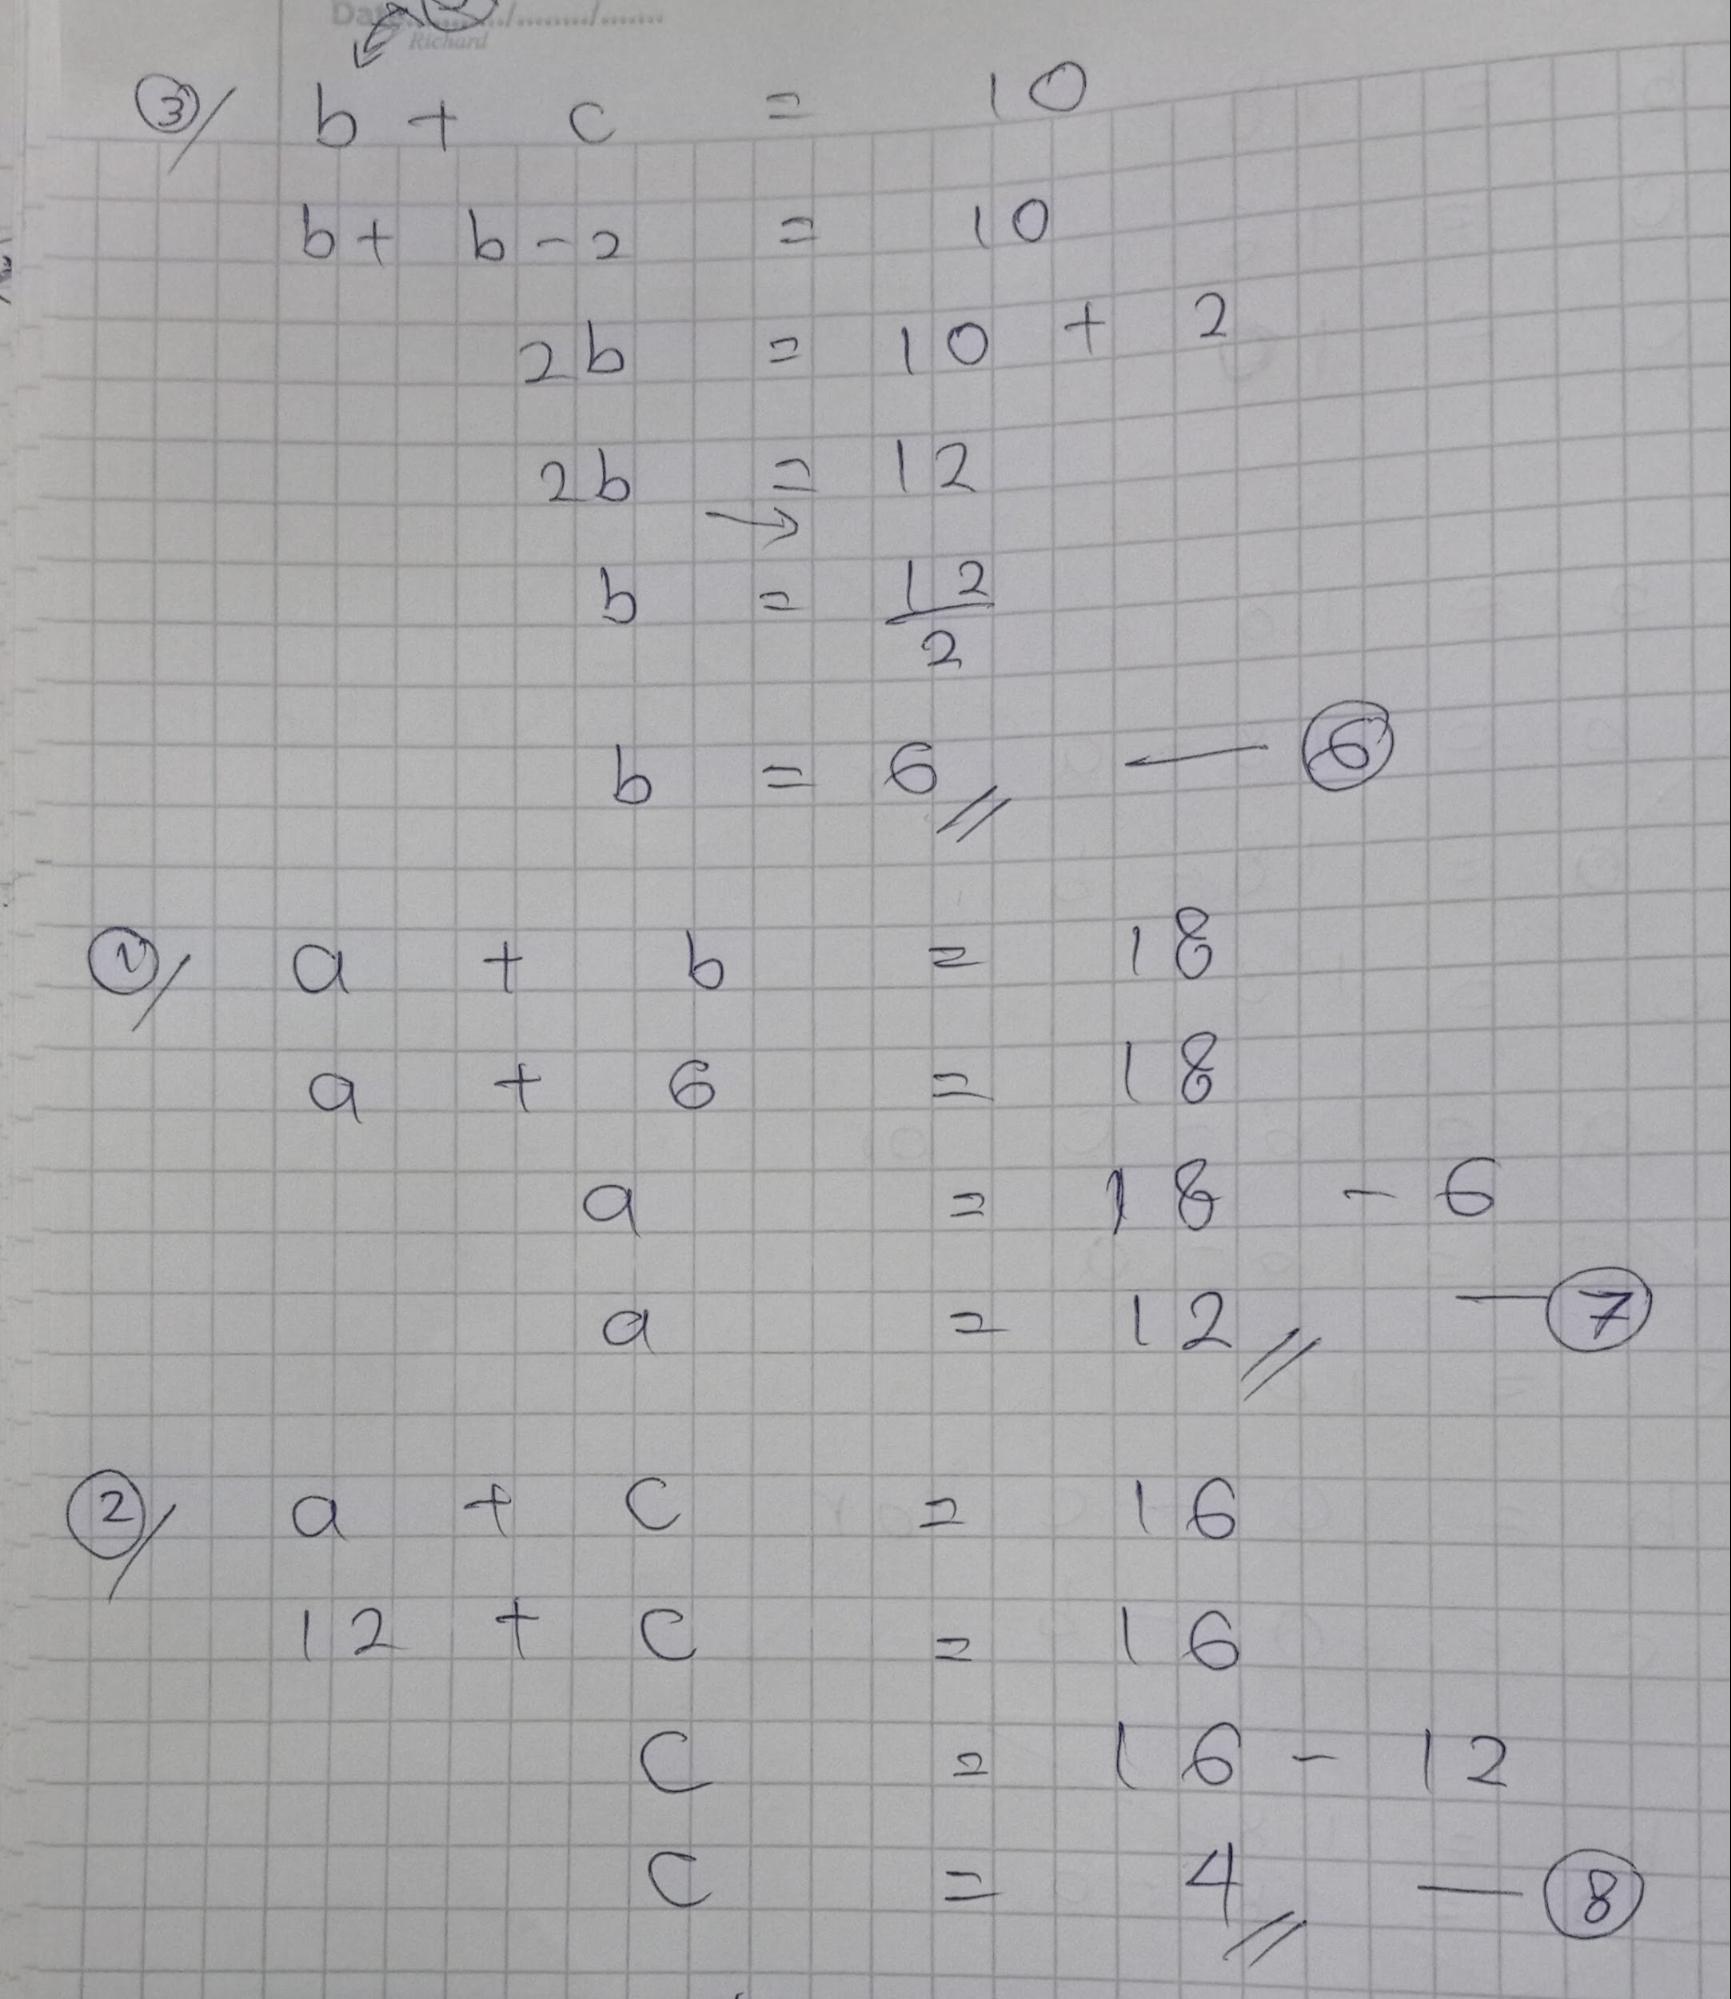 Date ......./......../.......
Richard
③/ b + c = 10
b + b - 2 = 10
2b = 10 + 2
2b = 12
→
b = 12/2
b = 6 // — ⑥
①/ a + b = 18
a + 6 = 18
a = 18 - 6
a = 12 // — ⑦
②/ a + c = 16
12 + c = 16
c = 16 - 12
c = 4 // — ⑧